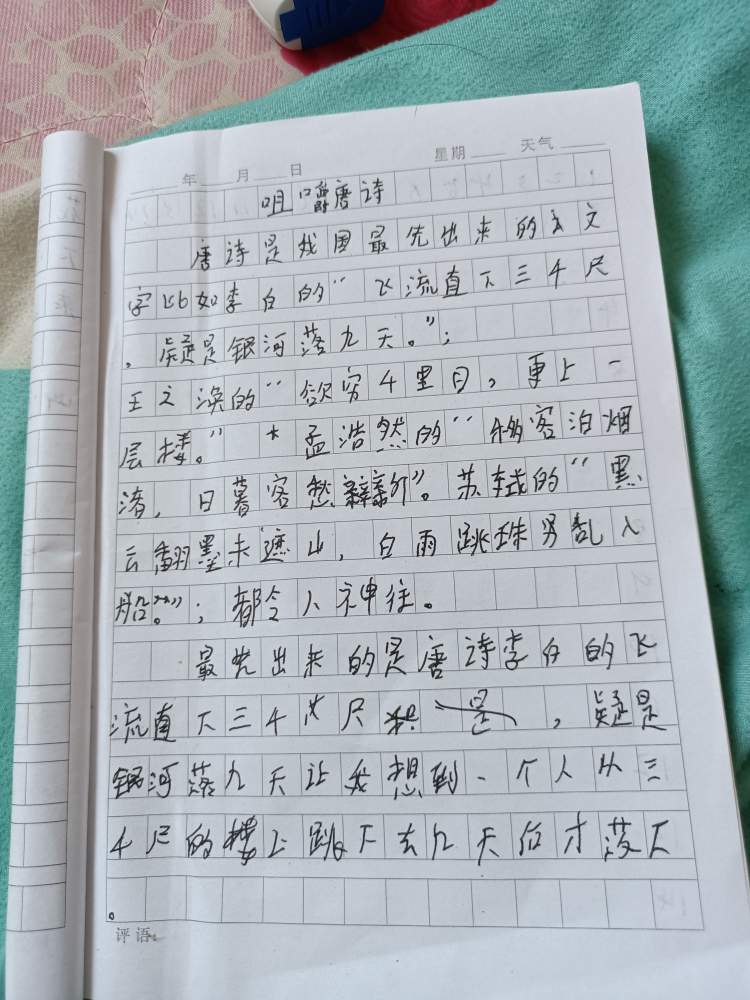 年 月 日 星期 天气
咀嚼唐诗
唐诗是我国最先出来的文
字比如李白的“飞流直下三千尺
，疑是银河落九天。”；
王之涣的“欲穷千里目，更上一
层楼。” 孟浩然的“移客泊烟
渚，日暮客愁新”。苏轼的“黑
云翻墨未遮山，白雨跳珠男乱入
船。”；都令人神往。
最先出来的是唐诗李白的飞
流直下三千尺 是，疑是
银河落九天让我想到一个人从三
千尺的楼上跳下去九天后才落下
。
评语：